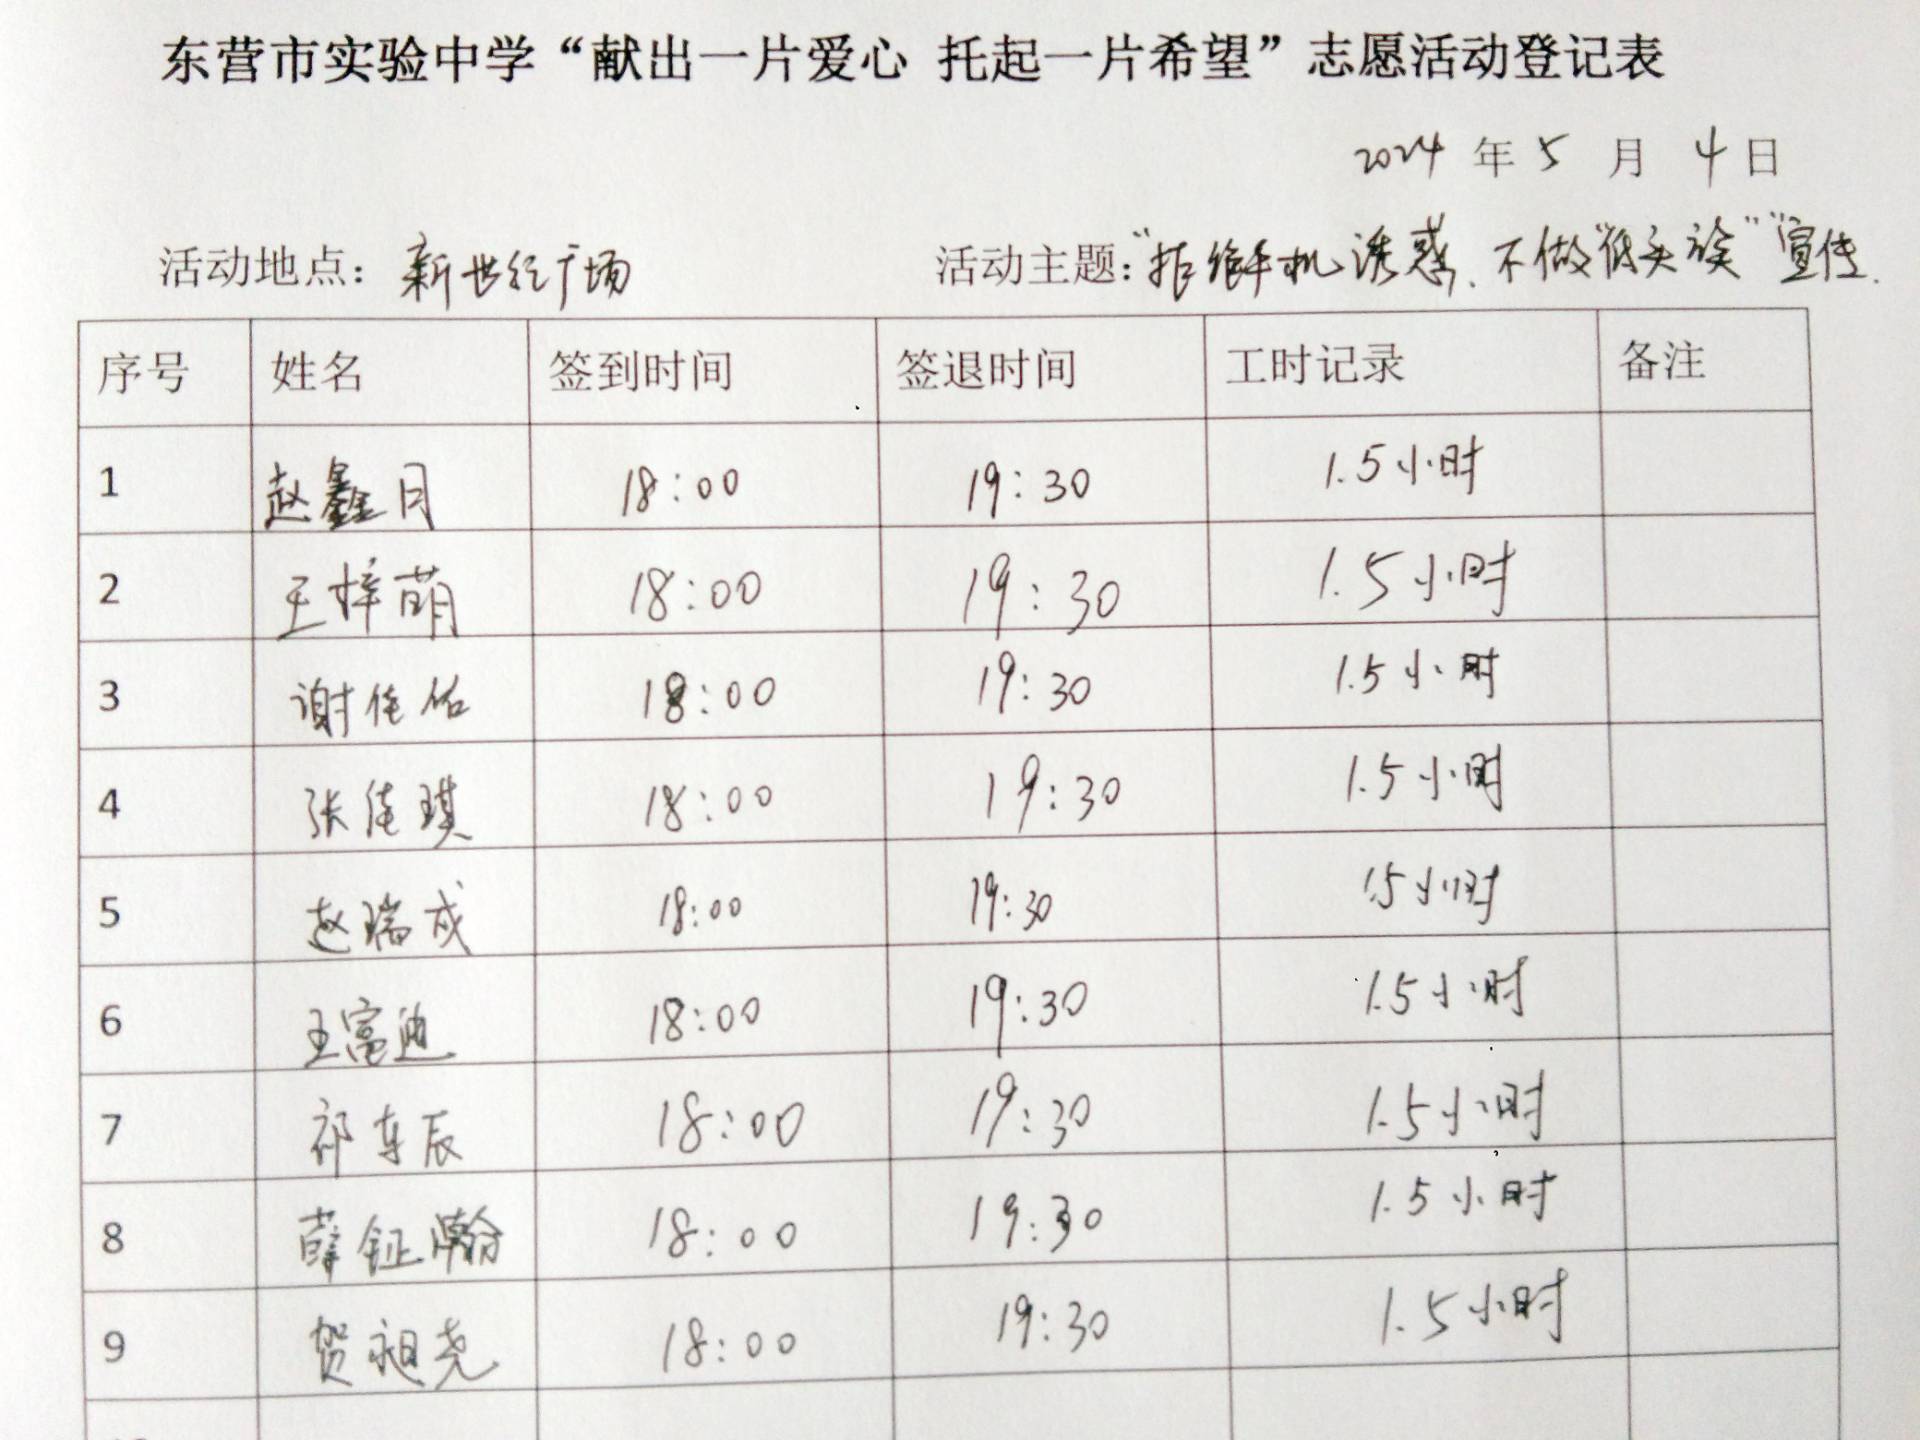 东营市实验中学“献出一片爱心 托起一片希望”志愿活动登记表
2024 年 5 月 4 日
活动地点：新世纪广场 活动主题：“拒绝手机诱惑、不做“低头族””宣传.
序号 姓名 签到时间 签退时间 工时记录 备注
1 赵鑫月 18:00 19:30 1.5小时
2 王梓萌 18:00 19:30 1.5小时
3 谢佳佑 18:00 19:30 1.5小时
4 张佳琪 18:00 19:30 1.5小时
5 赵瑞成 18:00 19:30 1.5小时
6 王富迪 18:00 19:30 1.5小时
7 祁东辰 18:00 19:30 1.5小时
8 薛钲瀚 18:00 19:30 1.5小时
9 贺祖尧 18:00 19:30 1.5小时